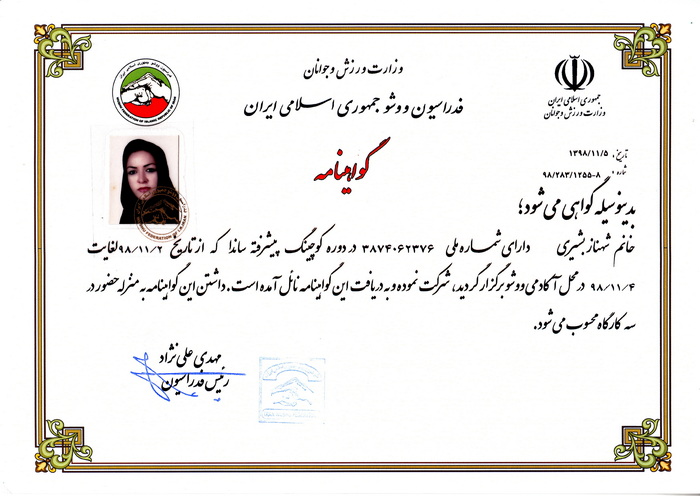 وزارت ورزش و جوانان
فدراسیون ووشو جمهوری اسلامی ایران
جمهوری اسلامی ایران
وزارت ورزش و جوانان
گواهینامه
تاریخ: ۱۳۹۸/۱۱/۵
شماره: ۹۸/۲۸۳/۱۲۵۵-۸
بدینوسیله گواهی می شود؛
خانم شهناز بشیری دارای شماره ملی ۳۸۷۴۰۶۲۳۷۶ در دوره کوچینگ پیشرفته ساندا که از تاریخ ۹۸/۱۱/۲ لغایت
۹۸/۱۱/۴ در محل آکادمی ووشو برگزار گردید، شرکت نموده و به دریافت این گواهینامه نائل آمده است. داشتن این گواهینامه به منزله حضور در
سه کارگاه محسوب می شود.
مهدی علی نژاد
رئیس فدراسیون